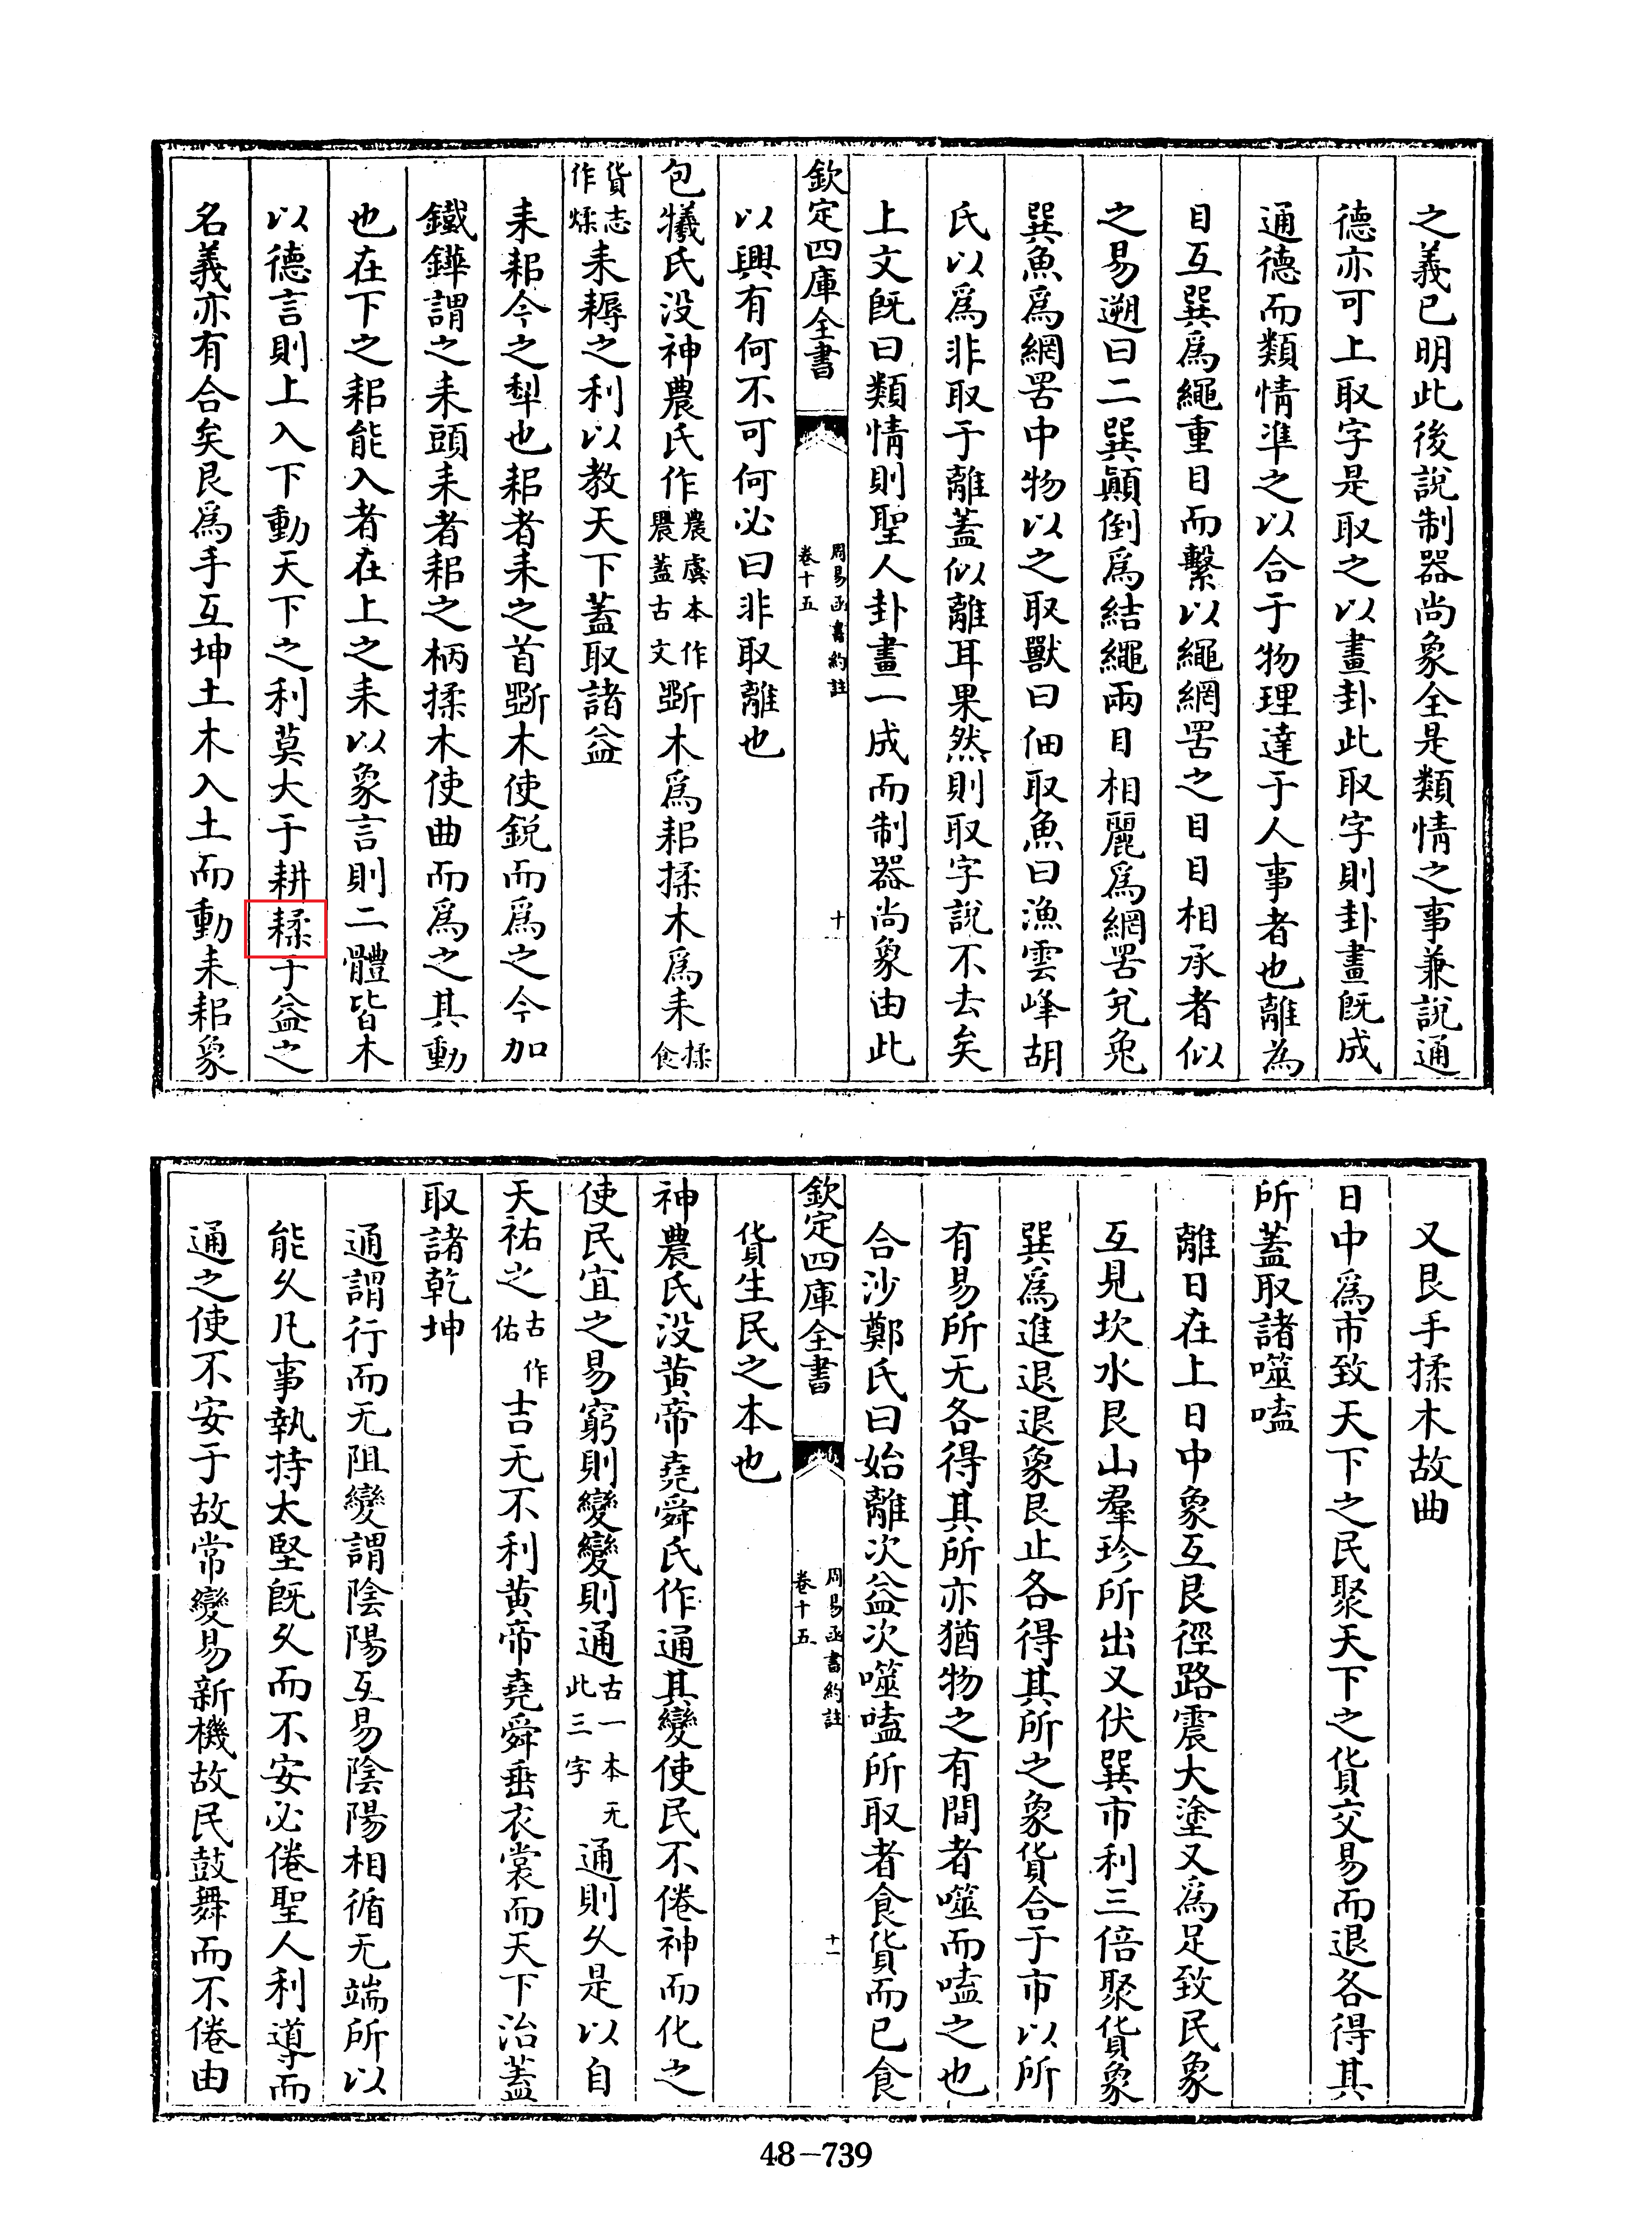 之義已明此後說制器尚象全是類情之事兼說通
德亦可上取字是取之以畫卦此取字則卦畫既成
通德而類情準之以合于物理達于人事者也離為
目互巽爲繩重目而繫以繩網罟之目目相承者似
之易遡曰二巽顚倒爲結繩兩目相麗爲網罟兊兔
巽魚爲網罟中物以之取獸曰佃取魚曰漁雲峰胡
氏以爲非取于離蓋似離耳果然則取字說不去矣
上文旣曰類情則聖人卦畫一成而制器尚象由此
欽定四庫全書
周易函書約註
卷十五
十
以興有何不可何必曰非取離也
包犧氏没神農氏作農虞本作
蓋古文斲木爲耜揉木爲耒揉食
貨志
作煣耒耨之利以教天下蓋取諸益
耒耜今之犁也耜者耒之首斲木使銳而爲之今加
鐵鏵謂之耒頭耒者耜之柄揉木使曲而爲之其動
也在下之耜能入者在上之耒以象言則二體皆木
以德言則上入下動天下之利莫大于耕耨于益之
名義亦有合矣艮爲手互坤土木入土而動耒耜象
又艮手揉木故曲
日中爲市致天下之民聚天下之貨交易而退各得其
所蓋取諸噬嗑
離日在上日中象互艮徑路震大塗又爲足致民象
互見坎水艮山羣珍所出又伏巽市利三倍聚貨象
巽爲進退退象艮止各得其所之象貨合于市以所
有易所无各得其所亦猶物之有間者噬而嗑之也
合沙鄭氏曰始離次益次噬嗑所取者食貨而已食
欽定四庫全書
周易函書約註
卷十五
十一
貨生民之本也
神農氏没黄帝堯舜氏作通其變使民不倦神而化之
使民宜之易窮則變變則通古一本无
此三字通則久是以自
天祐之古作
佑吉无不利黄帝堯舜垂衣裳而天下治蓋
取諸乾坤
通謂行而无阻變謂陰陽互易陰陽相循无端所以
能久凡事執持太堅旣久而不安必倦聖人利導而
通之使不安于故常變易新機故民鼓舞而不倦由
48-739